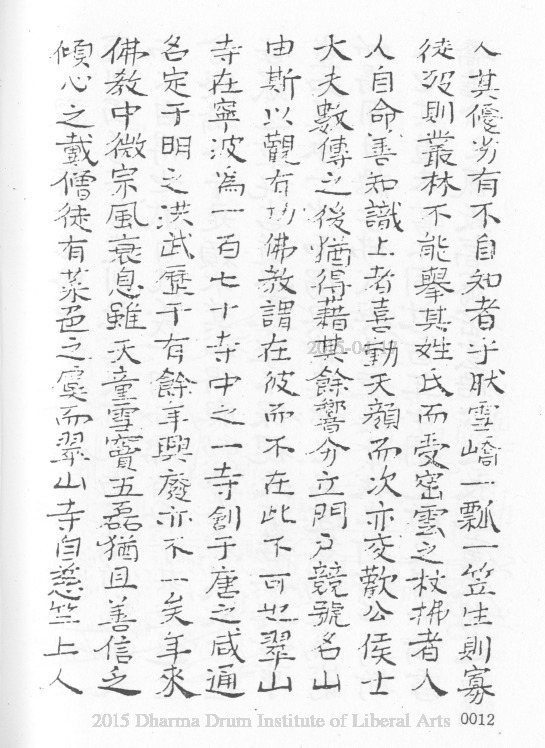 人其優劣有不自知者乎耿雪嶠一瓢一笠生則寡
徒歿則叢林不能舉其姓氏而受密雲之杖拂者人
人自命善知識上者喜動天顔而次亦交歡公侯士
大夫數傳之後猶得藉其餘響分立門戶競號名山
由斯以觀有功佛教謂在彼而不在此不可也翠山
寺在寧波爲一百七十寺中之一寺創于唐之咸通
名定于明之洪武歷千有餘年興廢亦不一矣年來
佛教中微宗風衰息雖天童雪竇五磊猶且善信之
傾心之戴僧徒有菜色之虞而翠山寺自慈竺上人
2015 Dharma Drum Institute of Liberal Arts
0012